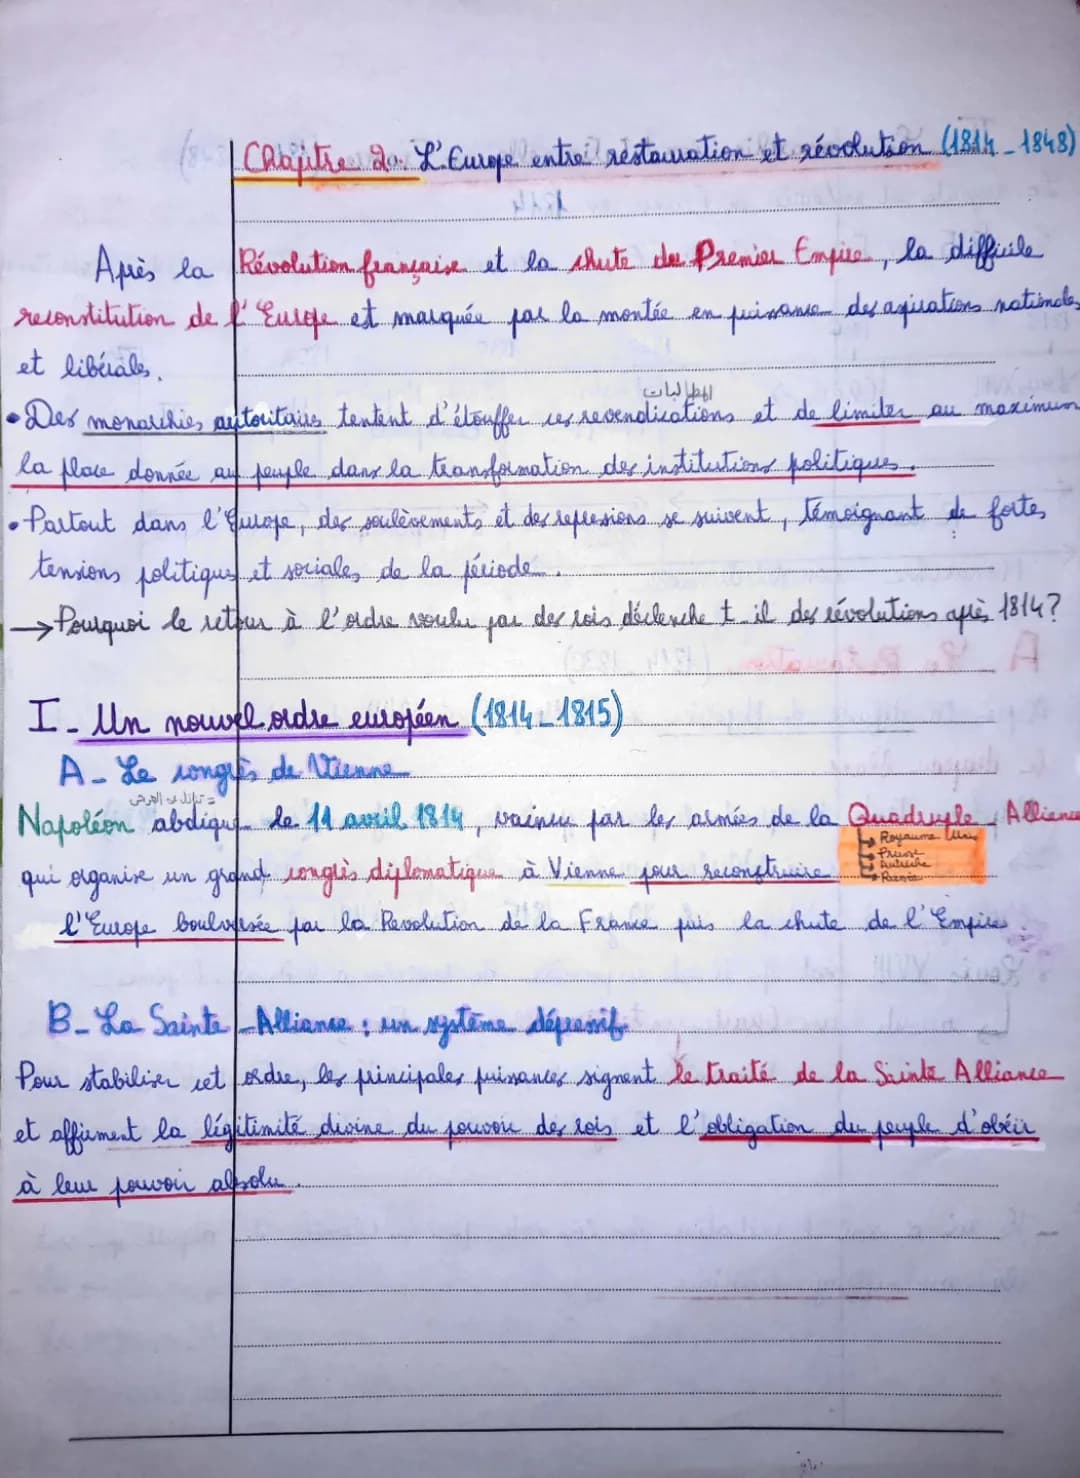 Chapitre 2: L'Europe entre restauration et révolution (1814_1848)
Après la Révolution française et la chute du Premier Empire, la difficile
reconstitution de l'Europe et marquée par la montée en puissance des aspirations nationales
et libérales.
المطالبات
• Des monarchies autoritaires tentent d'étouffer ces revendications et de limiter au maximum
la place donnée au peuple dans la transformation des institutions politiques.
• Partout dans l'Europe, des soulèvements et des repressions se suivent, témoignant de fortes
tensions politiques et sociales de la période.
→ Pourquoi le retour à l'ordre voulu par des rois déclenche t_il des révolutions après 1814?
I_ Un nouvel ordre européen (1814_1815)
A_ Le congrès de Vienne
= تنازل عن العرش
Napoléon abdique le 11 avril 1814, vaincu par les armées de la Quadruple_Alliance
→ Royaume Uni
→ Prusse
→ Autriche
→ Russie
qui organise un grand congrès diplomatique à Vienne pour reconstruire
l'Europe boulversée par la Revolution de la France puis la chute de l'Empire.
B_ La Sainte_Alliance : un système dépressif
Pour stabiliser cet ordre, les principales puissances signent le traité de la Sainte Alliance
et affirment la légitimité divine du pouvoir des rois et l'obligation du peuple d'obéir
à leur pouvoir absolu.